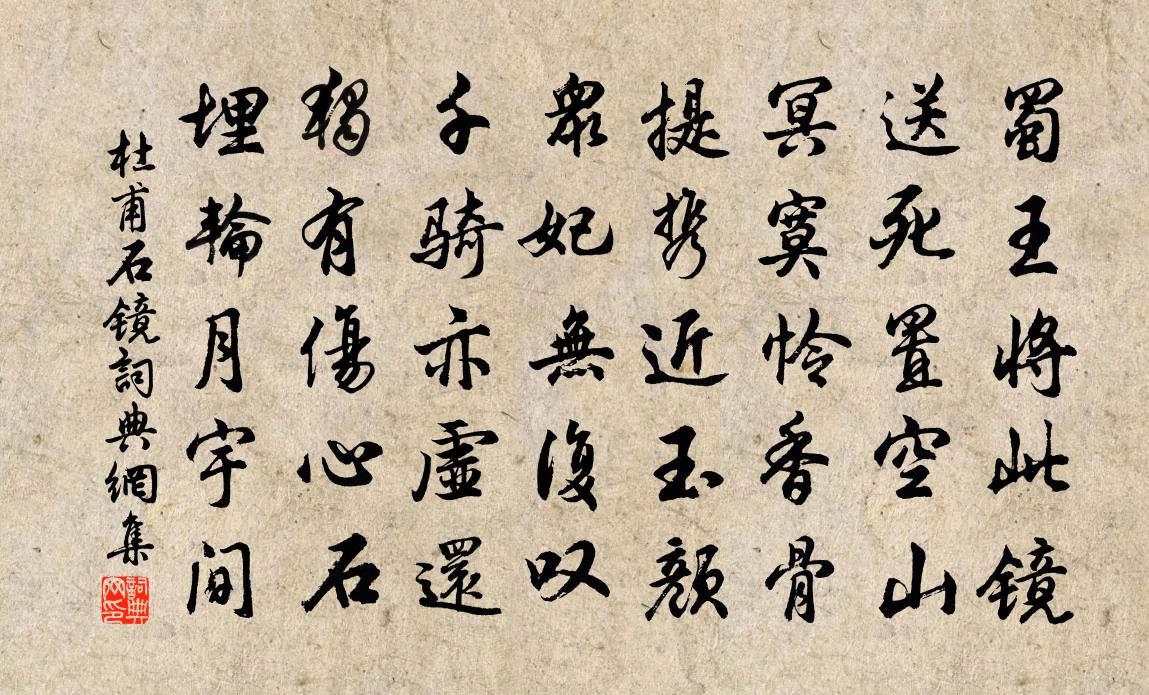 蜀王将此镜
送死置空山
冥寞怜香骨
提携近玉顔
衆妃無復叹
千骑亦虛還
獨有傷心石
埋輪月宇间
杜甫石镜詞典網集
詞典网印